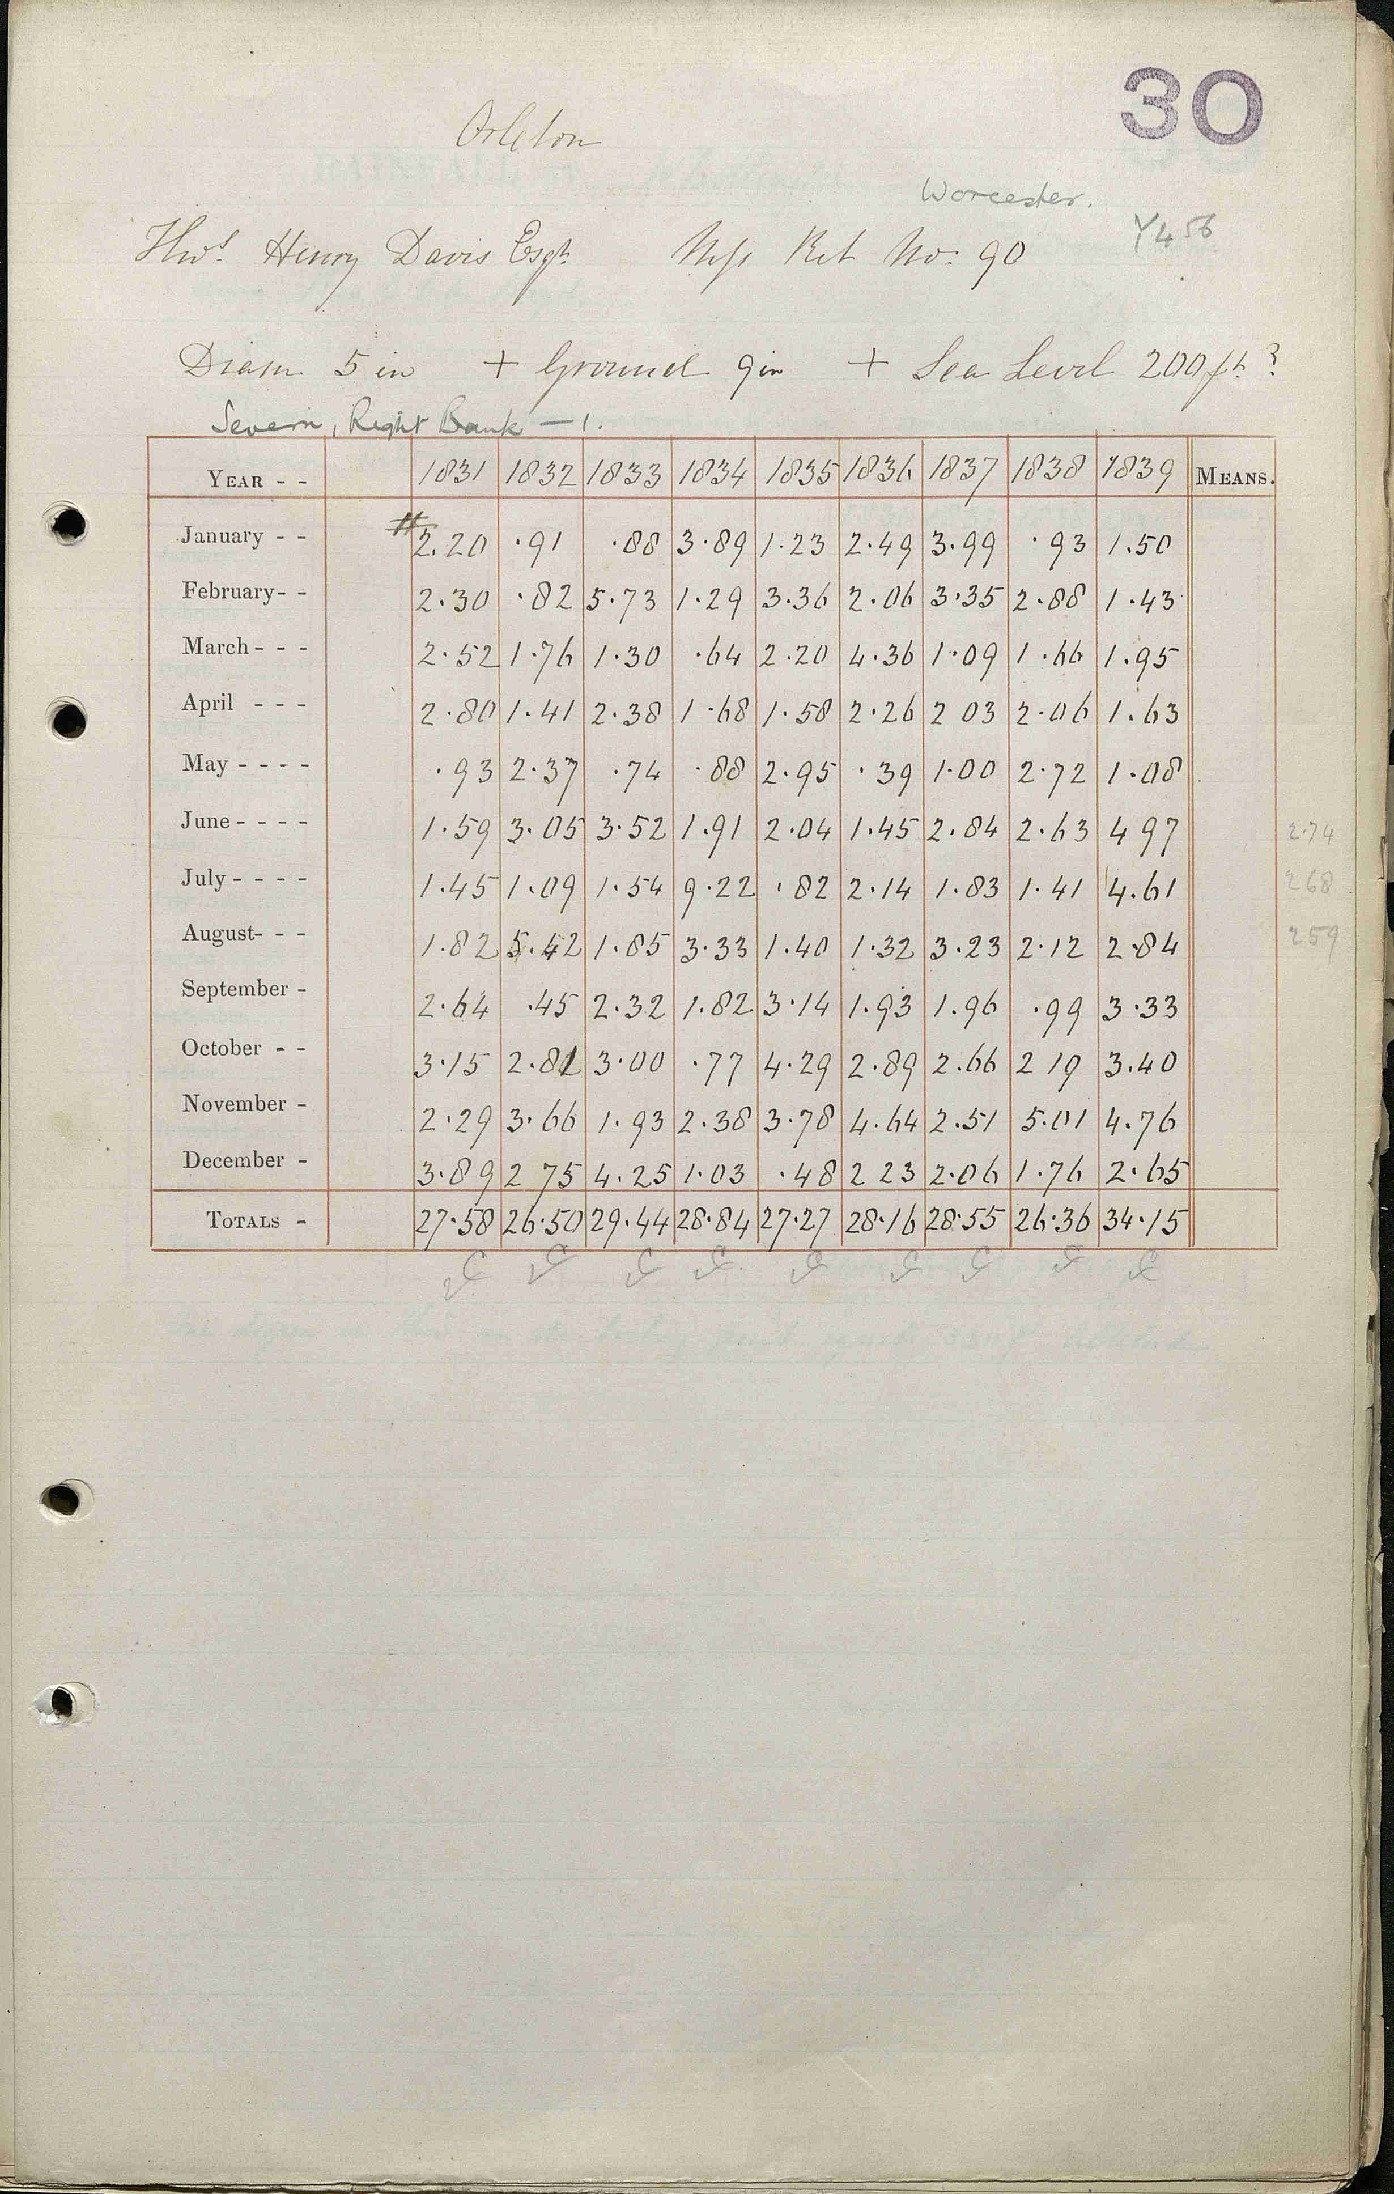 30
Orleton
Worcester.
Y456
Thos. Henry Davis Esqr. Ret No. 90
Diam 5 in + Ground 9in + Sea Level 200ft?
Severn, Right Bank — 1.
YEAR - - 1831 1832 1833 1834 1835 1836 1837 1838 1839 MEANS.
January - - # 2.20 .91 .88 3.89 1.23 2.49 3.99 .93 1.50
February - - 2.30 .82 5.73 1.29 3.36 2.06 3.35 2.88 1.43
March - - - 2.52 1.76 1.30 .64 2.20 4.36 1.09 1.66 1.95
April - - - 2.80 1.41 2.38 1.68 1.58 2.26 2 03 2.06 1.63
May - - - - .93 2.37 .74 .88 2.95 .39 1.00 2.72 1.08
June - - - - 1.59 3.05 3.52 1.91 2.04 1.45 2.84 2.63 4 97 2.74
July - - - - 1.45 1.09 1.54 9.22 .82 2.14 1.83 1.41 4.61 268
August - - - 1.82 5.42 1.85 3.33 1.40 1.32 3.23 2.12 2.84 259
September - 2.64 .45 2.32 1.82 3.14 1.93 1.96 .99 3.33
October - - 3.15 2.81 3.00 .77 4.29 2.89 2.66 2 19 3.40
November - 2.29 3.66 1.93 2.38 3.78 4.64 2.51 5.01 4.76
December - 3.89 2 75 4.25 1.03 .48 2 23 2.06 1.76 2.65
TOTALS - 27.58 26.50 29.44 28.84 27.27 28.16 28.55 26.36 34.15